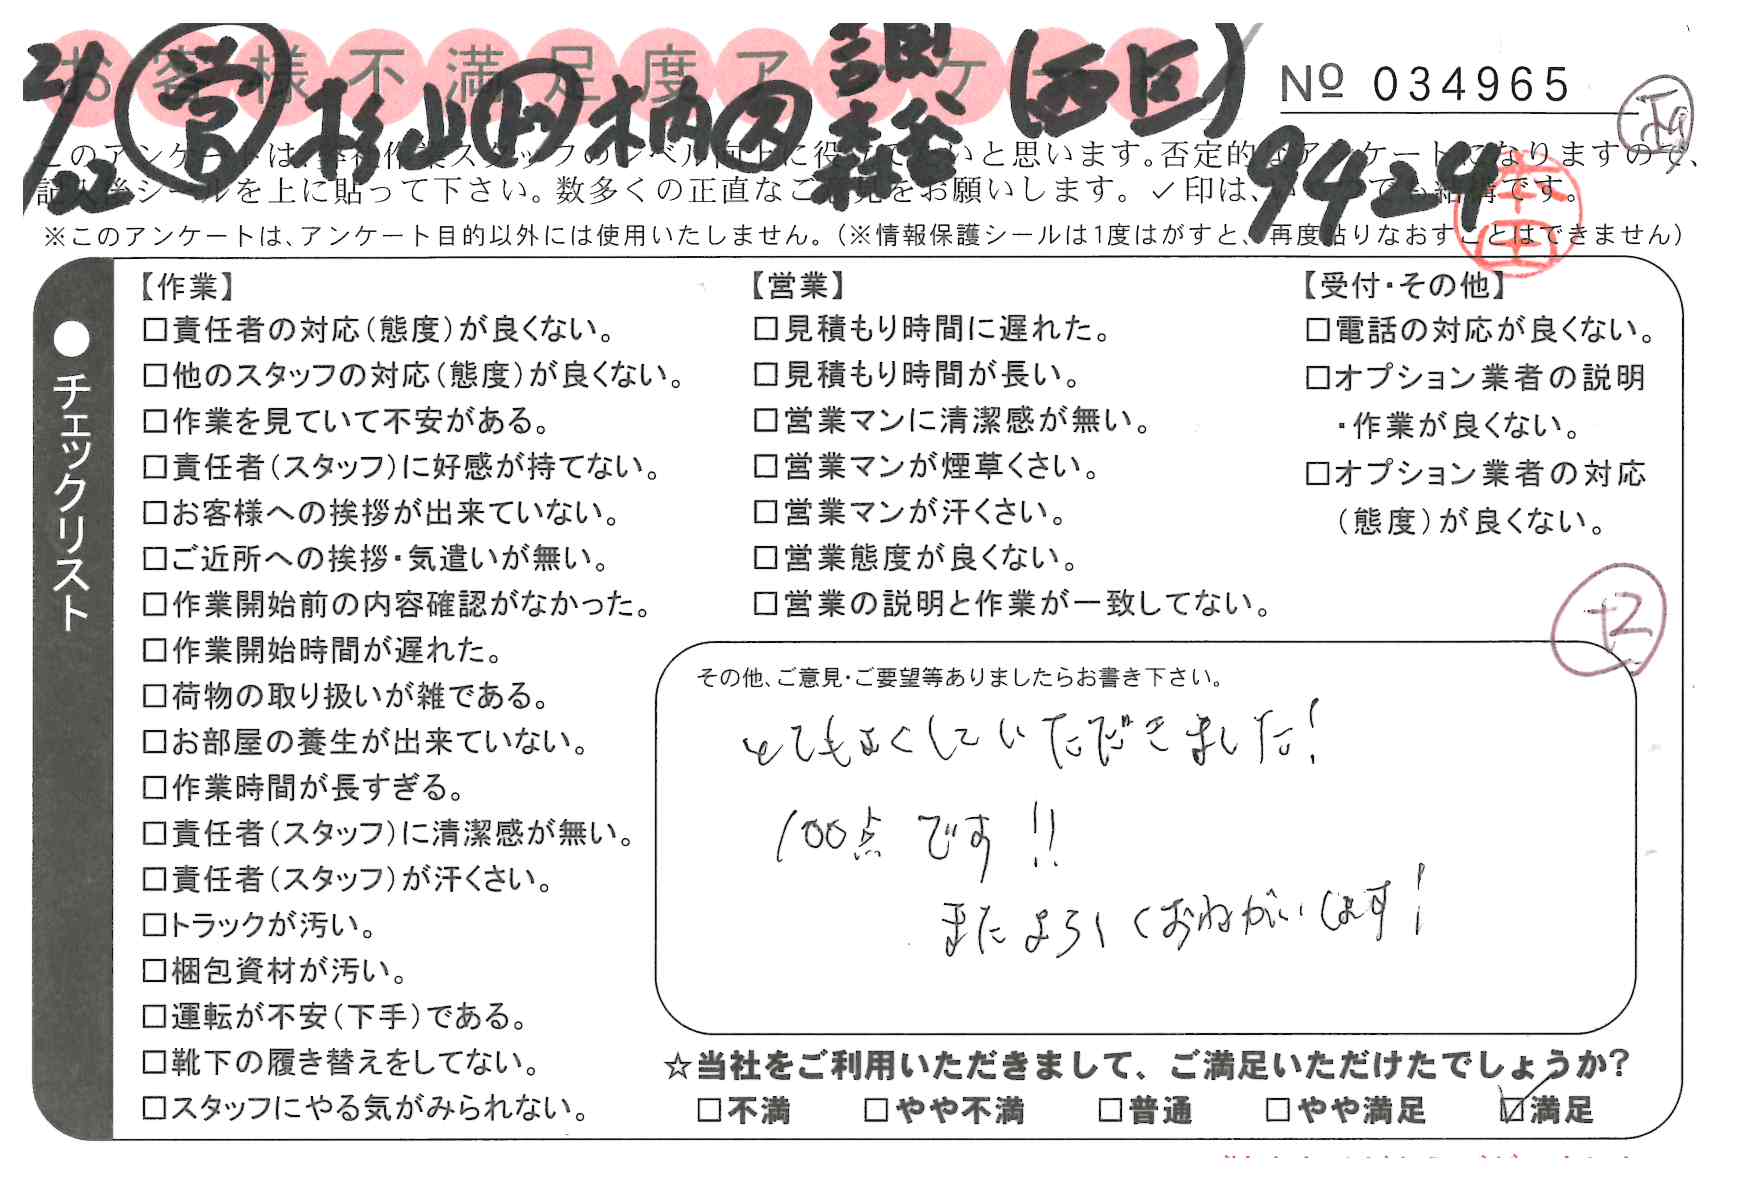 お客様不満足度アンケート
2/22 営 杉山 柄内 調 森谷 (西回)
No 034965
9424
このアンケートは、弊社作業スタッフのレベル向上に役立てたいと思います。否定的なアンケートになりますので、
記入後シールを上に貼って下さい。数多くの正直なご意見をお願いします。✓印は、いくつでも結構です。
※このアンケートは、アンケート目的以外には使用いたしません。(※情報保護シールは1度はがすと、再度貼りなおすことはできません)
●チェックリスト
【作業】
□責任者の対応(態度)が良くない。
□他のスタッフの対応(態度)が良くない。
□作業を見ていて不安がある。
□責任者(スタッフ)に好感が持てない。
□お客様への挨拶が出来ていない。
□ご近所への挨拶・気遣いが無い。
□作業開始前の内容確認がなかった。
□作業開始時間が遅れた。
□荷物の取り扱いが雑である。
□お部屋の養生が出来ていない。
□作業時間が長すぎる。
□責任者(スタッフ)に清潔感が無い。
□責任者(スタッフ)が汗くさい。
□トラックが汚い。
□梱包資材が汚い。
□運転が不安(下手)である。
□靴下の履き替えをしてない。
□スタッフにやる気がみられない。
【営業】
□見積もり時間に遅れた。
□見積もり時間が長い。
□営業マンに清潔感が無い。
□営業マンが煙草くさい。
□営業マンが汗くさい。
□営業態度が良くない。
□営業の説明と作業が一致してない。
【受付・その他】
□電話の対応が良くない。
□オプション業者の説明
・作業が良くない。
□オプション業者の対応
(態度)が良くない。
その他、ご意見・ご要望等ありましたらお書き下さい。
とてもよくしていただきました!
100点です!!
またよろしくおねがいします!
☆当社をご利用いただきまして、ご満足いただけたでしょうか?
□不満 □やや不満 □普通 □やや満足 ☑満足